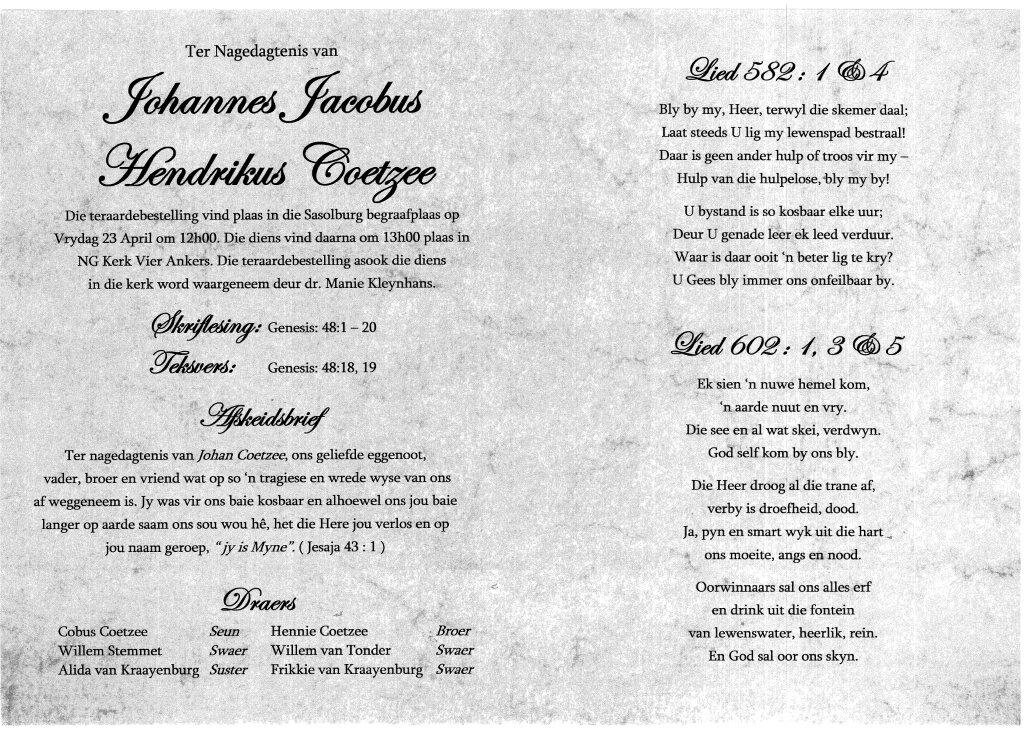 Ter Nagedagtenis van
Johannes Jacobus
Hendrikus Coetzee
Die teraardebestelling vind plaas in die Sasolburg begraafplaas op
Vrydag 23 April om 12h00. Die diens vind daarna om 13h00 plaas in
NG Kerk Vier Ankers. Die teraardebestelling asook die diens
in die kerk word waargeneem deur dr. Manie Kleynhans.
Skriflesing: Genesis: 48:1 – 20
Teksvers: Genesis: 48:18, 19
Afskeidsbrief
Ter nagedagtenis van Johan Coetzee, ons geliefde eggenoot,
vader, broer en vriend wat op so ‘n tragiese en wrede wyse van ons
af weggeneem is. Jy was vir ons baie kosbaar en alhoewel ons jou baie
langer op aarde saam ons sou wou hê, het die Here jou verlos en op
jou naam geroep, “jy is Myne”. ( Jesaja 43 : 1 )
Draers
Cobus Coetzee Seun Hennie Coetzee Broer
Willem Stemmet Swaer Willem van Tonder Swaer
Alida van Kraayenburg Suster Frikkie van Kraayenburg Swaer
Lied 582 : 1 & 4
Bly by my, Heer, terwyl die skemer daal;
Laat steeds U lig my lewenspad bestraal!
Daar is geen ander hulp of troos vir my –
Hulp van die hulpelose, bly my by!
U bystand is so kosbaar elke uur;
Deur U genade leer ek leed verduur.
Waar is daar ooit ‘n beter lig te kry?
U Gees bly immer ons onfeilbaar by.
Lied 602 : 1, 3 & 5
Ek sien ‘n nuwe hemel kom,
‘n aarde nuut en vry.
Die see en al wat skei, verdwyn.
God self kom by ons bly.
Die Heer droog al die trane af,
verby is droefheid, dood.
Ja, pyn en smart wyk uit die hart
ons moeite, angs en nood.
Oorwinnaars sal ons alles erf
en drink uit die fontein
van lewenswater, heerlik, rein.
En God sal oor ons skyn.